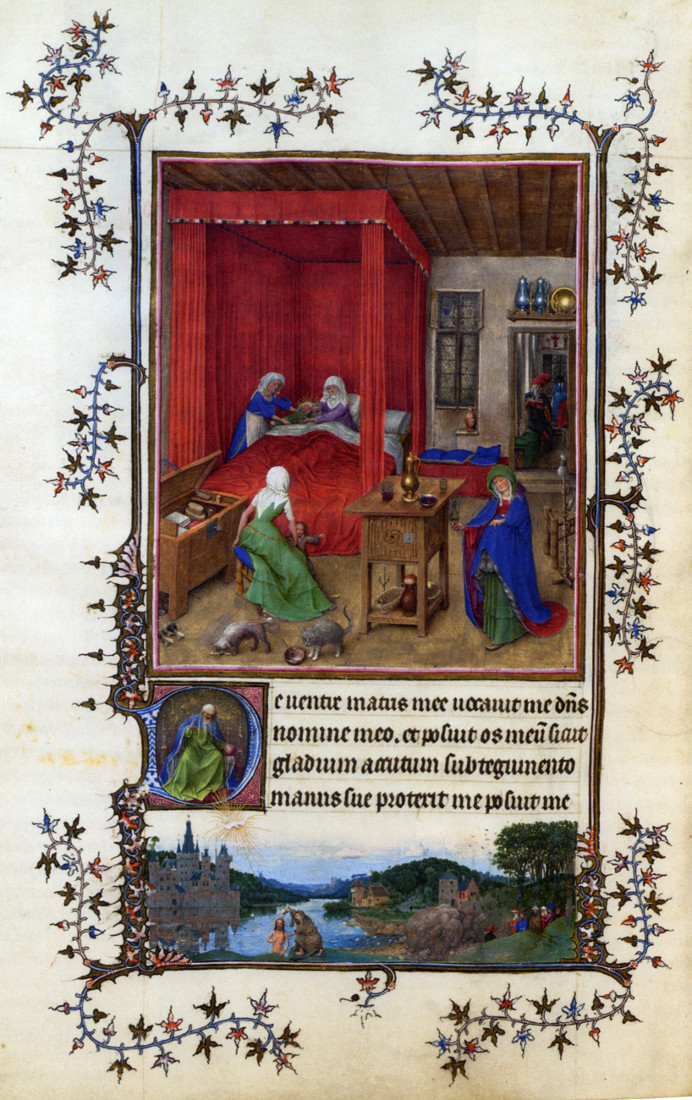 De uentre matris mee uocauit me dñs
nomine meo. et posuit os meū sicut
gladium accutum subtegumento
manus sue proterit me posuit me